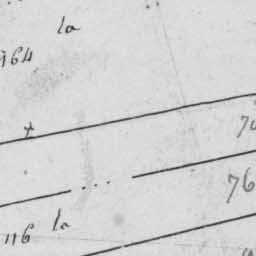 la
164
76
la
116